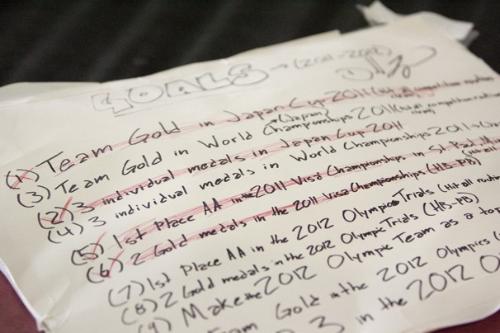 GOALS → (2011-2012)
(1) Team Gold in Japan Cup 2011 (
(3) Team Gold in World Championships 2011 (
(Japan)
(2) 3 individual medals in Japan Cup 2011
(4) 3 individual medals in World Championships 2011
(5) 1st Place AA in the 2011 Visa Championships in St. Paul
(6) 2 Gold medals in the 2011 Visa Championships (HB-PB)
(7) 1st Place AA in the 2012 Olympic Trials (Hit all
(8) 2 Gold medals in the 2012 Olympic Trials (HB-PB)
(9) Make the 2012 Olympic Team as a
Team Gold in the 2012 Olympics
3 in the 2012